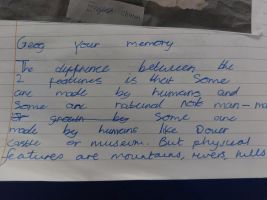 English
Geog your memory
The difference between the
2 features is that some
are made by humans and
some are natural not man-ma
Some are
made by humans like Dover
castle or museum. But physical
features are mountains, rivers, hills